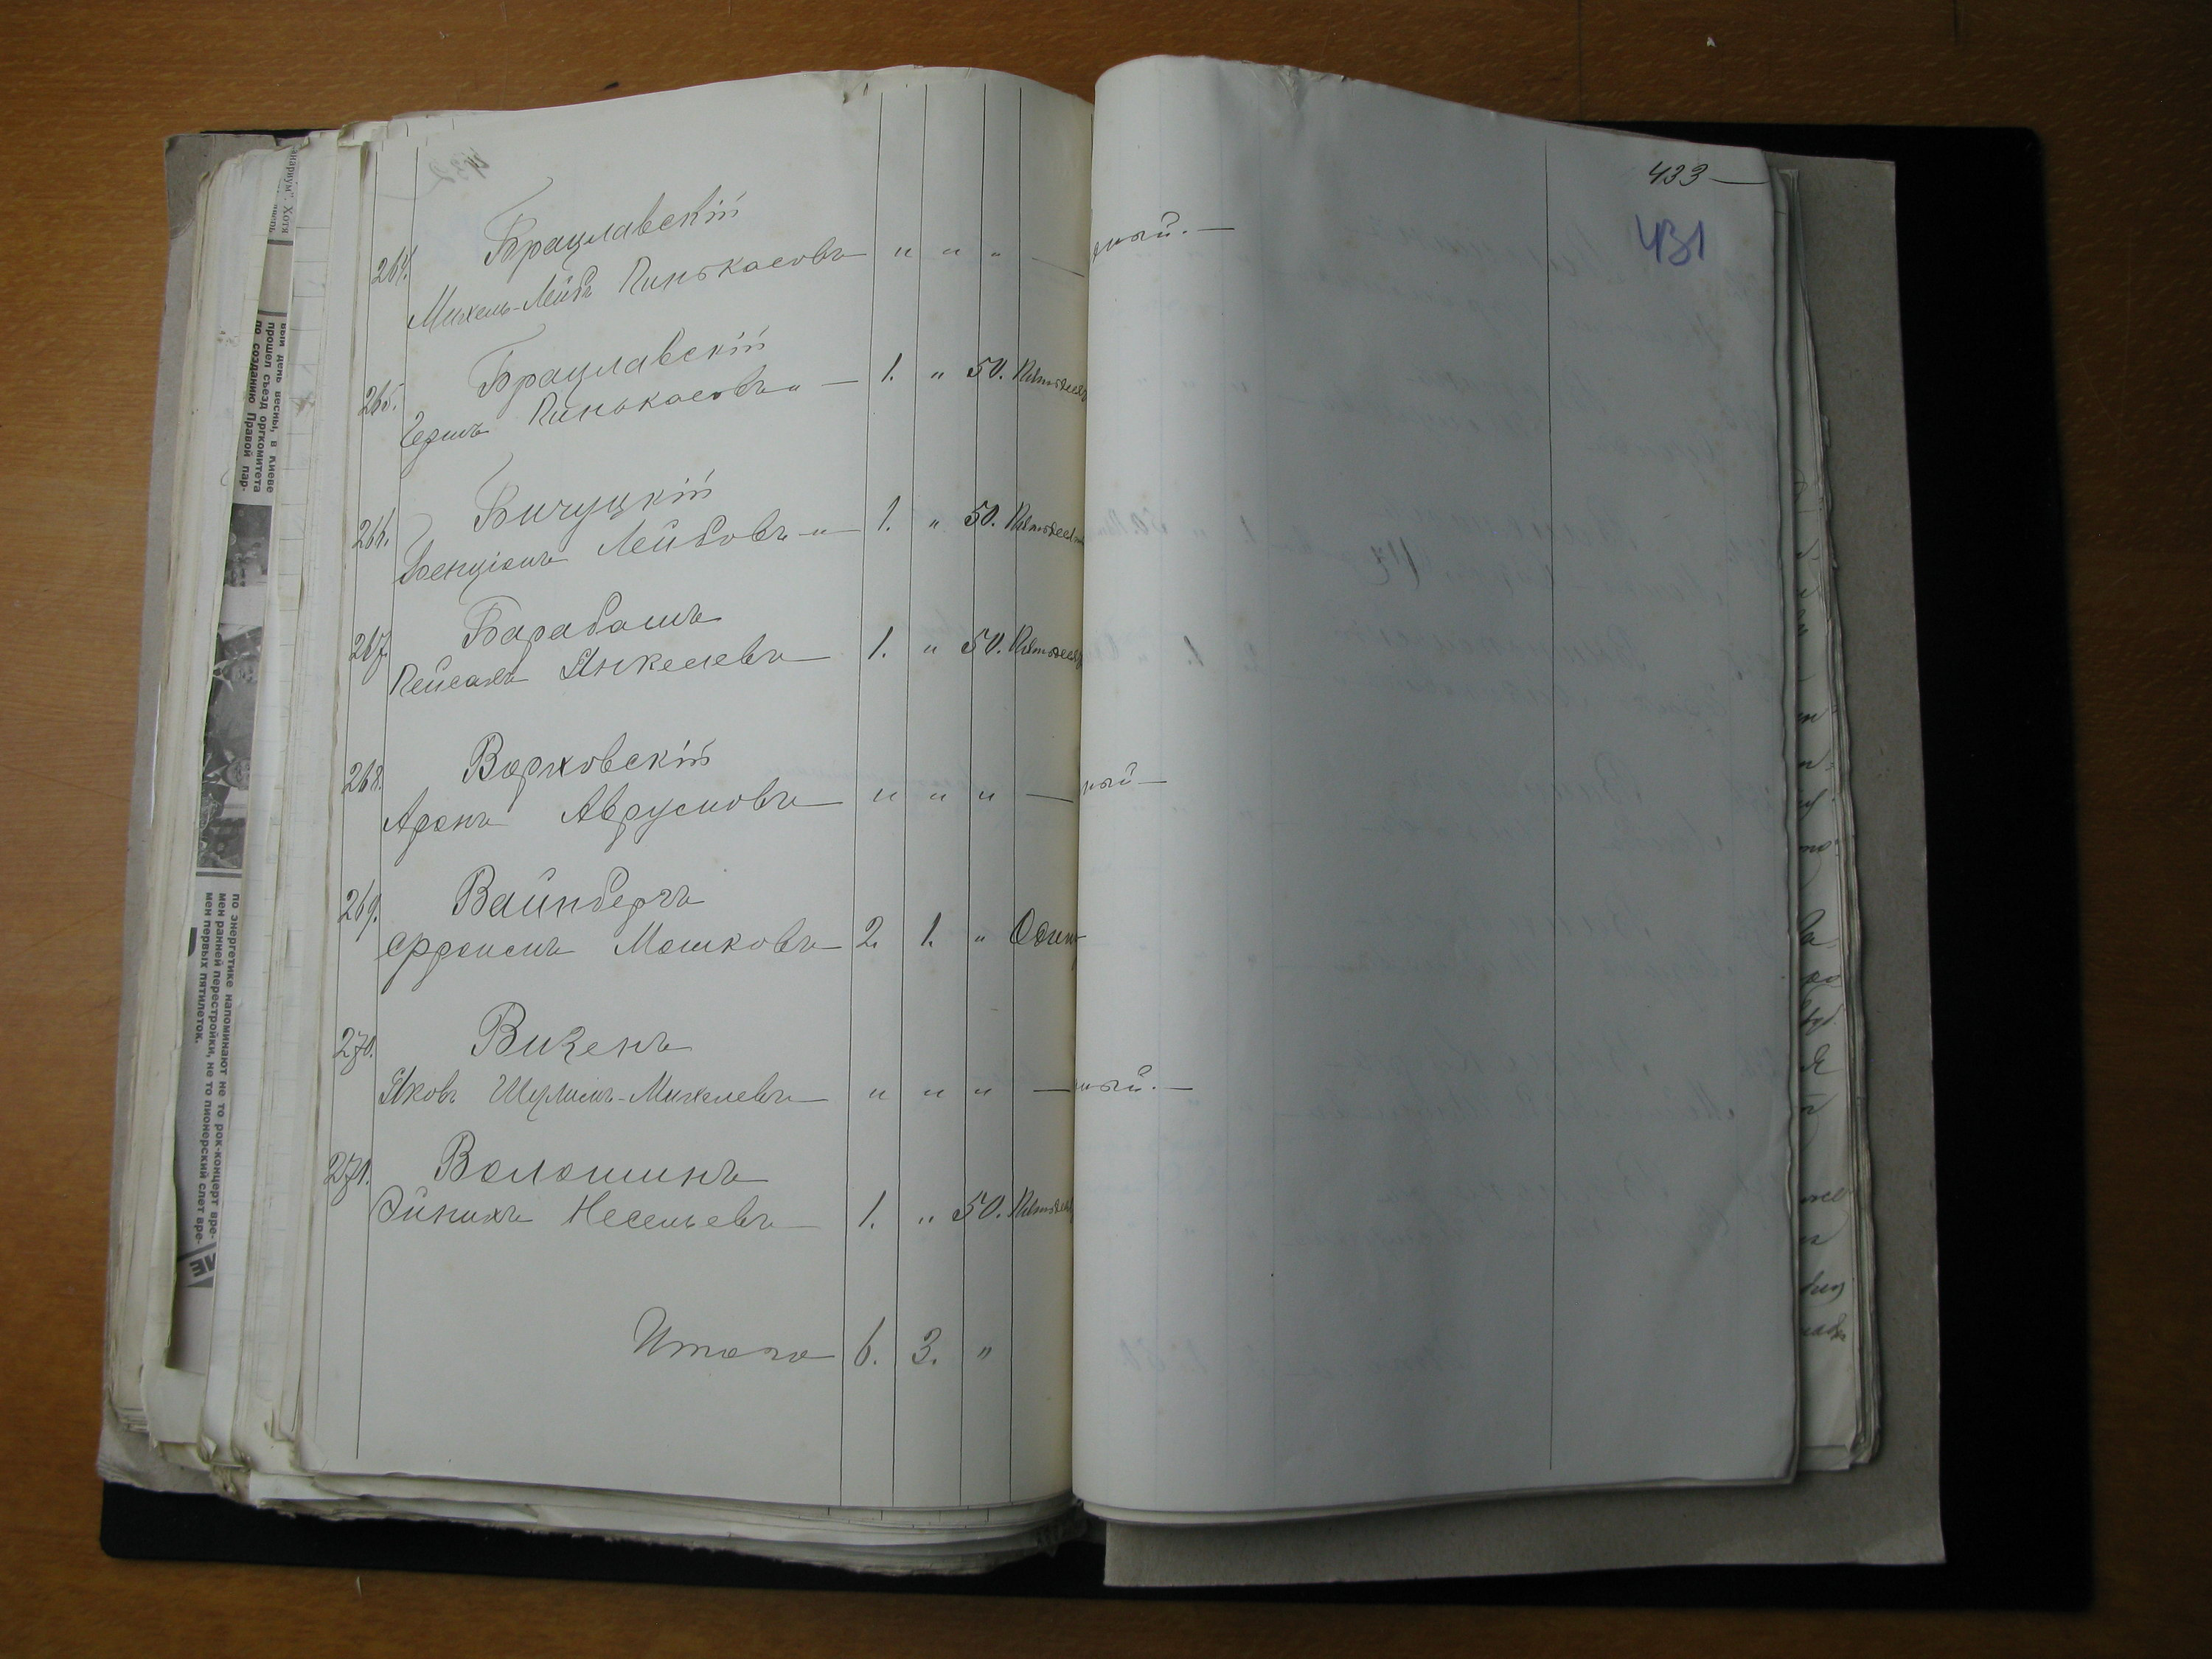 433
431
264. Брацлавскій
Михель-Лейбъ Пинькасовъ " " " — ный. —
265. Брацлавскій
Гершъ Пинькасовъ " — 1. " 50. Пятьдеся
266. Бичуцкій
Бенціонъ Лейбовъ — " — 1. " 50. Пятьдеся
267. Барабашъ
Пейсахъ Янкелевъ — 1. " 50. Пятьдеся
268. Ворховскій
Аронъ Аврумовъ — " " " — ный —
269. Вайнбергъ
Фроимъ Мошковъ — 2. 1. " Один
270. Визенъ
Яковъ Шулимъ-Михелевъ — " " " — ный. —
271. Волошинъ
Эйнихъ Несельевъ — 1. " 50. Пятьдес
Итого 6. 3. "
анариум". Хотя
вый день весны, в Киеве
прошел съезд оргкомитета
по созданию Правой пар-
по энергетике напоминают не то рок-концерт вре-
мен ранней перестройки, не то пионерский слет вре-
мен первых пятилеток.